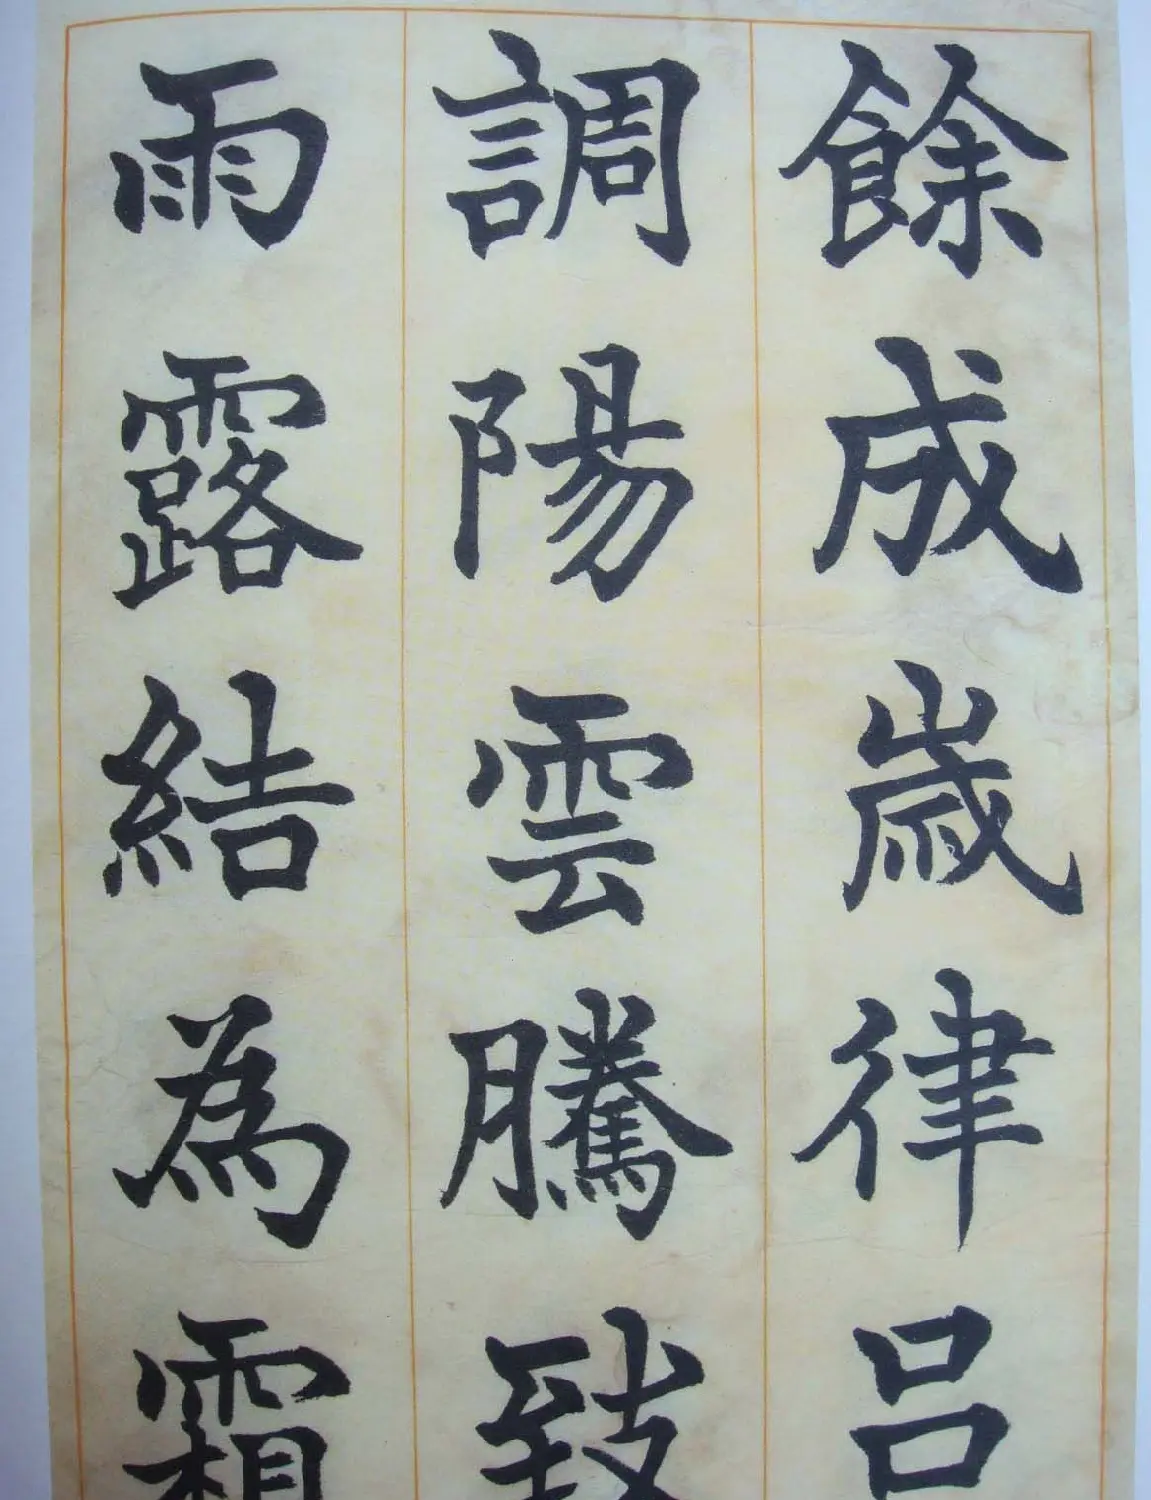 餘成歲律呂
調陽雲騰致
雨露結為霜